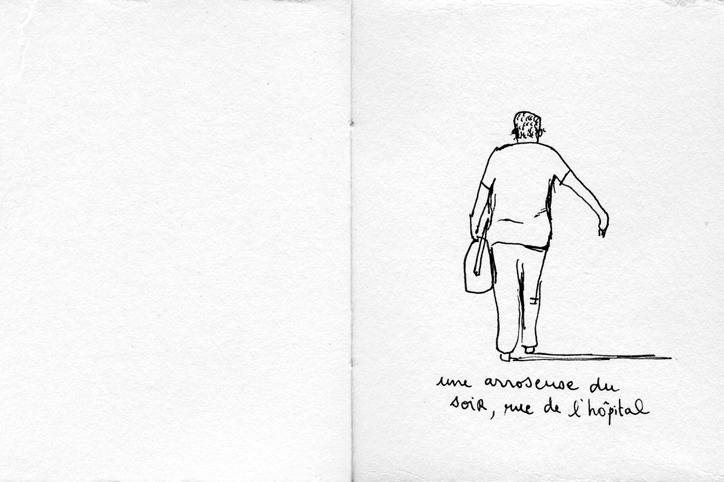 une arroseuse du
soir, rue de l'hôpital